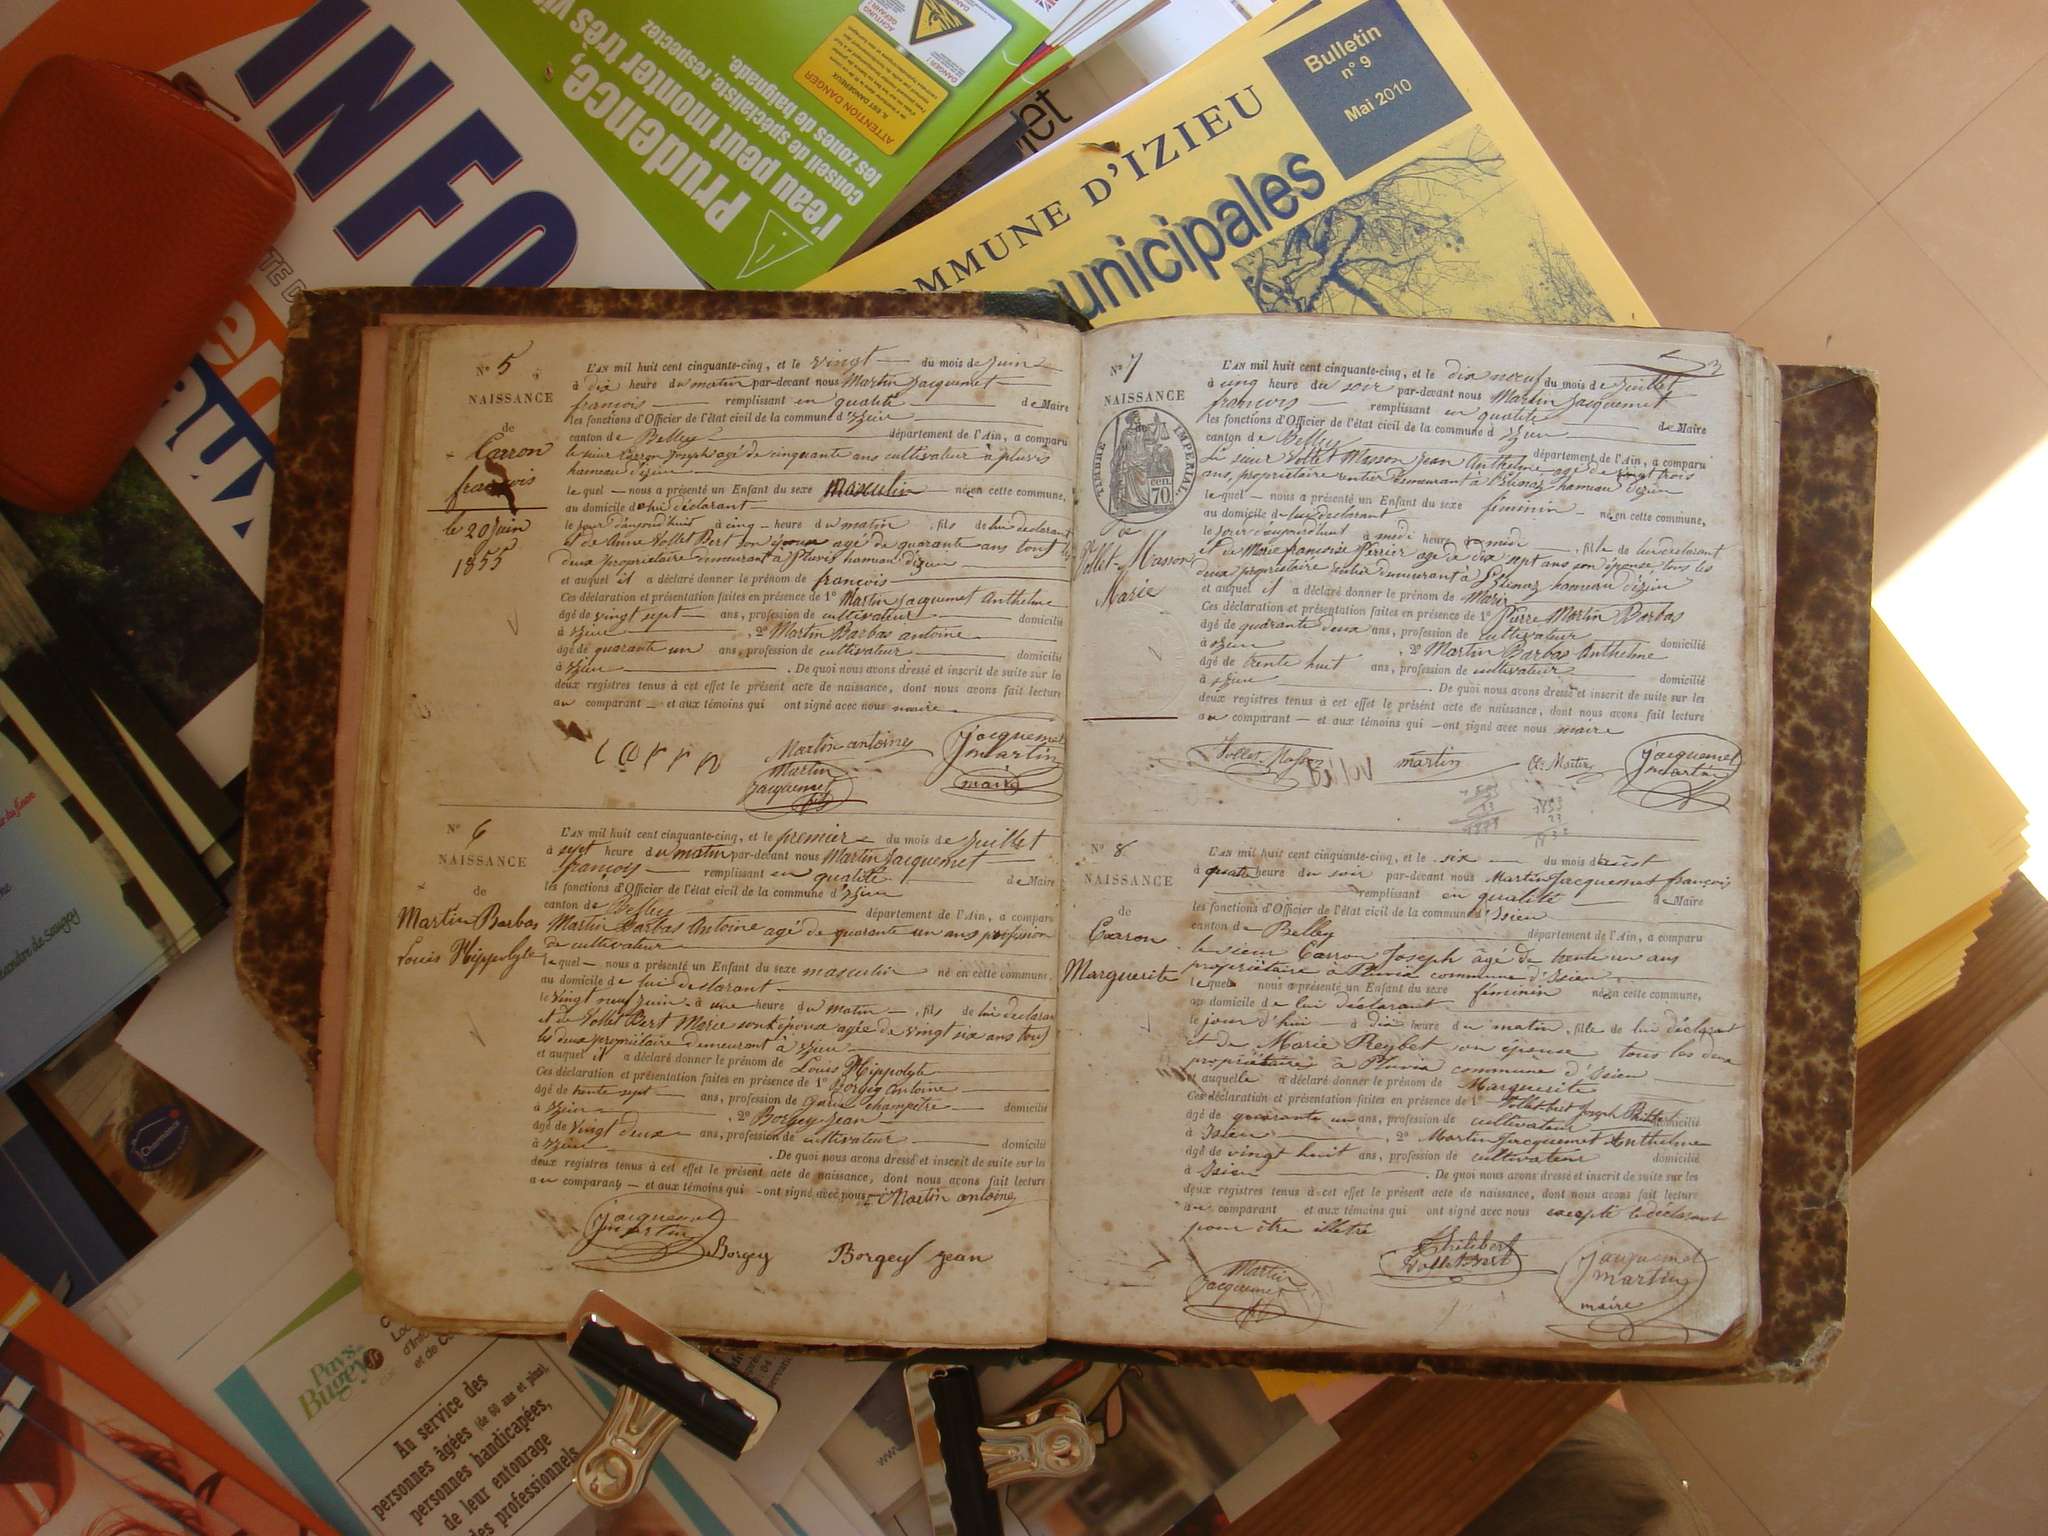 INFO
Prudence,
l'eau peut monter très vi
conseil de spécialiste, respectez
les zones de baignade.
ATTENTION DANGER
COMMUNE D'IZIEU
unicipales
Bulletin
n° 9
Mai 2010
N° 5
NAISSANCE
de
Carron
françois
le 20 Juin
1855
L'AN mil huit cent cinquante-cinq, et le vingt du mois de Juin
à dix heure du matin par-devant nous Martin Jacquemet
françois remplissant en qualité de Maire
les fonctions d'Officier de l'état civil de la commune d'izieu
canton de Belley département de l'Ain, a comparu
le sieur Carron Joseph agé de cinquante ans cultivateur a pluvis
hameau d'izieu
le quel nous a présenté un Enfant du sexe Masculin né en cette commune,
au domicile de lui déclarant
le jour d'aujourd'huit à cinq heure du matin, fils de lui declarant
et de Anne Vollet Bert son épouse agé de quarante ans tous les
deux propriétaire demeurant à Pluvis hameau d'izieu
et auquel il a déclaré donner le prénom de françois
Ces déclaration et présentation faites en présence de 1° Martin Jacquemet Anthelme
âgé de vingt sept ans, profession de cultivateur domicilié
à izieu , 2° Martin Barbas antoine
âgé de quarante un ans, profession de cultivateur domicilié
à izieu . De quoi nous avons dressé et inscrit de suite sur les
deux registres tenus à cet effet le présent acte de naissance, dont nous avons fait lecture
au comparant et aux témoins qui ont signé avec nous maire
Martin antoine
Martin
Jacquemet
fils
jacquemet
martin
maire
N° 6
NAISSANCE
de
Martin Barbas
Louis Hippolyte
L'AN mil huit cent cinquante-cinq, et le premier du mois de Juillet
à sept heure du matin par-devant nous Martin Jacquemet
françois remplissant en qualité de Maire
les fonctions d'Officier de l'état civil de la commune d'izieu
canton de Belley département de l'Ain, a comparu
Martin Barbas Antoine agé de quarante un ans profession
de cultivateur
le quel nous a présenté un Enfant du sexe masculin né en cette commune,
au domicile de lui declarant
le vingt neuf juin à une heure du matin, fils de lui declarant
et de Vollet Bert Marie son épouse agée de vingt six ans tous
les deux propriétaire demeurant à izieu
et auquel il a déclaré donner le prénom de Louis Hippolyte
Ces déclaration et présentation faites en présence de 1° Borgey Antoine
âgé de trente sept ans, profession de garde champêtre domicilié
à izieu , 2° Borgey Jean
âgé de vingt deux ans, profession de cultivateur domicilié
à izieu . De quoi nous avons dressé et inscrit de suite sur les
deux registres tenus à cet effet le présent acte de naissance, dont nous avons fait lecture
au comparant et aux témoins qui ont signé avec nous Martin antoine
jacquemet
martin
Borgey Borgey jean
N° 7
NAISSANCE
TIMBRE IMPERIAL
70 cen.
de
Vollet-Masson
Marie
L'AN mil huit cent cinquante-cinq, et le dix neuf du mois de Juillet
à cinq heure du soir par-devant nous Martin Jacquemet
francois remplissant en qualité de Maire
les fonctions d'Officier de l'état civil de la commune d izieu
canton de Belley département de l'Ain, a comparu
Le sieur Vollet Masson Jean Anthelme agé de vingt trois
ans, propriétaire rentier demeurant à hameau d'izieu
le quel nous a présenté un Enfant du sexe féminin né en cette commune,
au domicile de lui declarant
le jour d'aujourd'huit à midi heure , fille de lui declarant
et de Marie françoise Perrier agé de dix sept ans son épouse, tous les
deux propriétaire rentier demeurant à hameau d'izieu
et auquel il a déclaré donner le prénom de Marie
Ces déclaration et présentation faites en présence de 1° Pierre Martin Barbas
âgé de quarante deux ans, profession de cultivateur
à izieu , 2° Martin Barbas Anthelme domicilié
âgé de trente huit ans, profession de cultivateur
à izieu domicilié
. De quoi nous avons dressé et inscrit de suite sur les
deux registres tenus à cet effet le présent acte de naissance, dont nous avons fait lecture
au comparant et aux témoins qui ont signé avec nous maire
Vollet Masson martin A. Martin
jacquemet
martin
N° 8
NAISSANCE
de
Carron
Marguerite
L'AN mil huit cent cinquante-cinq, et le six du mois d'août
à quatre heure du soir par-devant nous Martin Jacquemet françois
remplissant en qualité de Maire
les fonctions d'Officier de l'état civil de la commune d'Isieu
canton de Belley département de l'Ain, a comparu
le sieur Carron Joseph âgé de trente un ans
propriétaire à Pluvis commune d'Isieu
le quel nous a présenté un Enfant du sexe féminin né en cette commune,
au domicile de lui déclarant
le jour d'hui à dix heure du matin, fille de lui déclarant
et de Marie Reybet son épouse tous les deux
propriétaires à Pluvis commune d'Isieu
et auquelle a déclaré donner le prénom de Marguerite
Ces déclaration et présentation faites en présence de 1° Vollet bert Joseph Philibert
âgé de quarante un ans, profession de cultivateur domicilié
à Isieu , 2° Martin Jacquemet Anthelme
âgé de vingt huit ans, profession de cultivateur domicilié
à Isieu . De quoi nous avons dressé et inscrit de suite sur les
deux registres tenus à cet effet le présent acte de naissance, dont nous avons fait lecture
au comparant et aux témoins qui ont signé avec nous excepté le déclarant
pour être illetré
Martin
Jacquemet
fils
Philibert
Vollet Bert
jacquemet
martin
maire
Pays
Bugey
Au service des
personnes âgées (de 60 ans et plus),
personnes handicapées,
de leur entourage
des professionnels